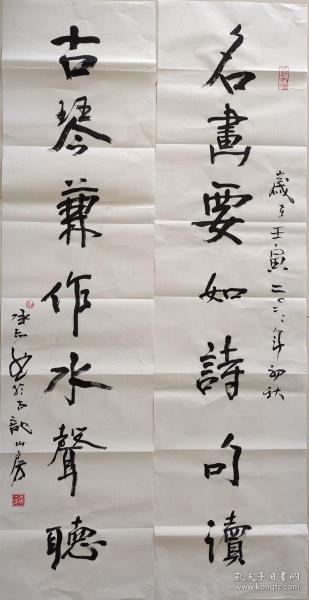 名畫要如詩句讀
歲在壬寅二〇二二年初秋
古琴兼作水聲聽
孔夫子旧书网